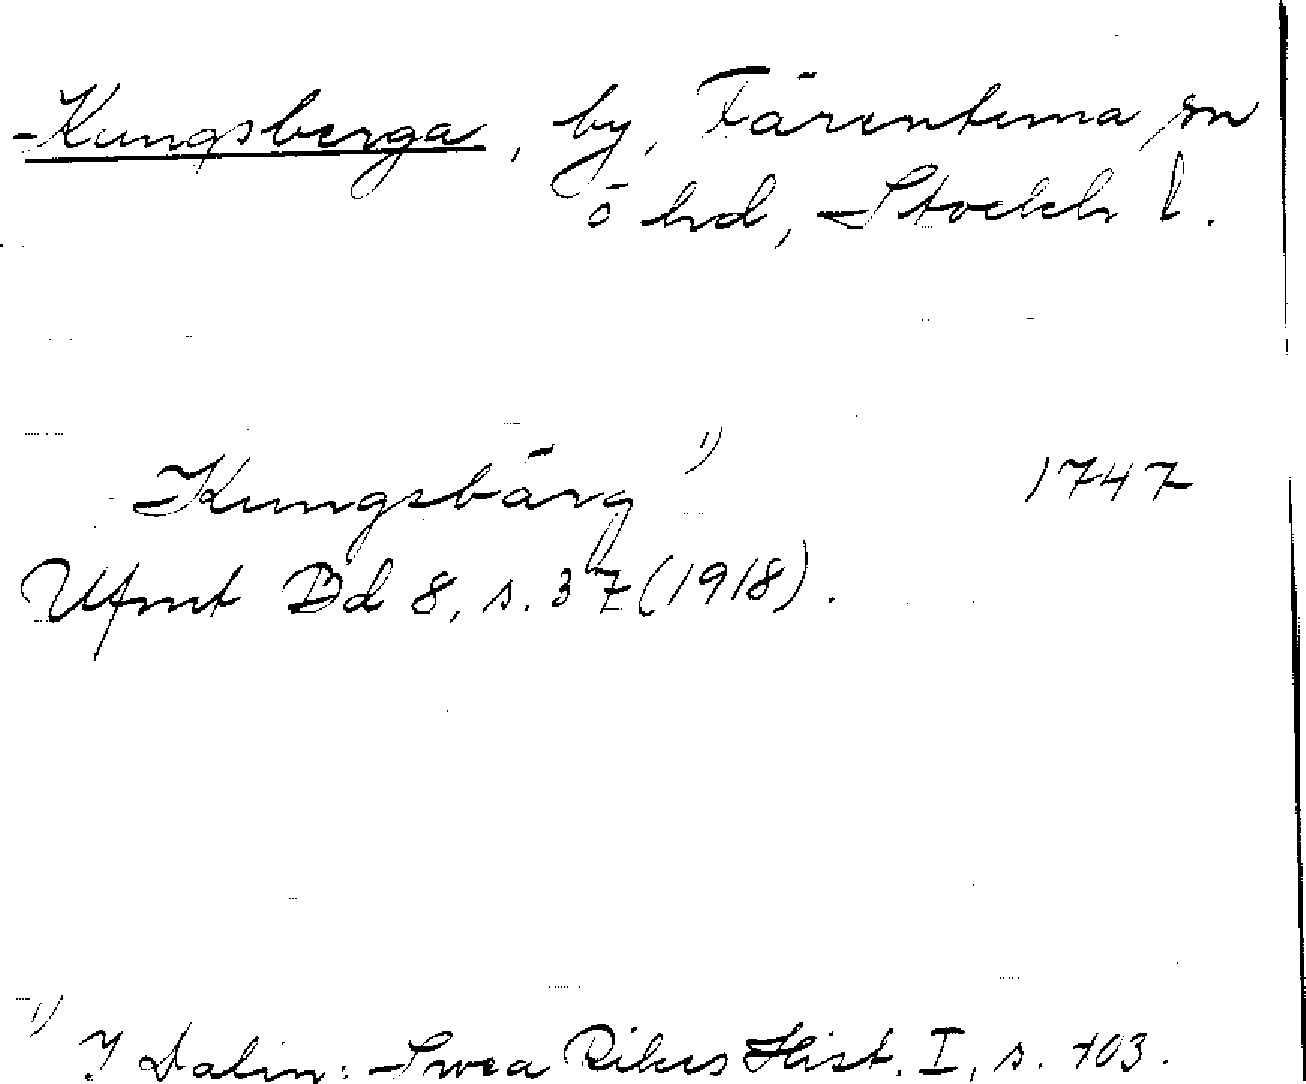 Kungsberga, by, Färentuna sn
ö hd, Stockh l.
Kungsbärg 1) 1747
Ufmt Bd 8, s. 37 (1918).
1) I Dalin: Svea Rikes Hist. I, s. 103.